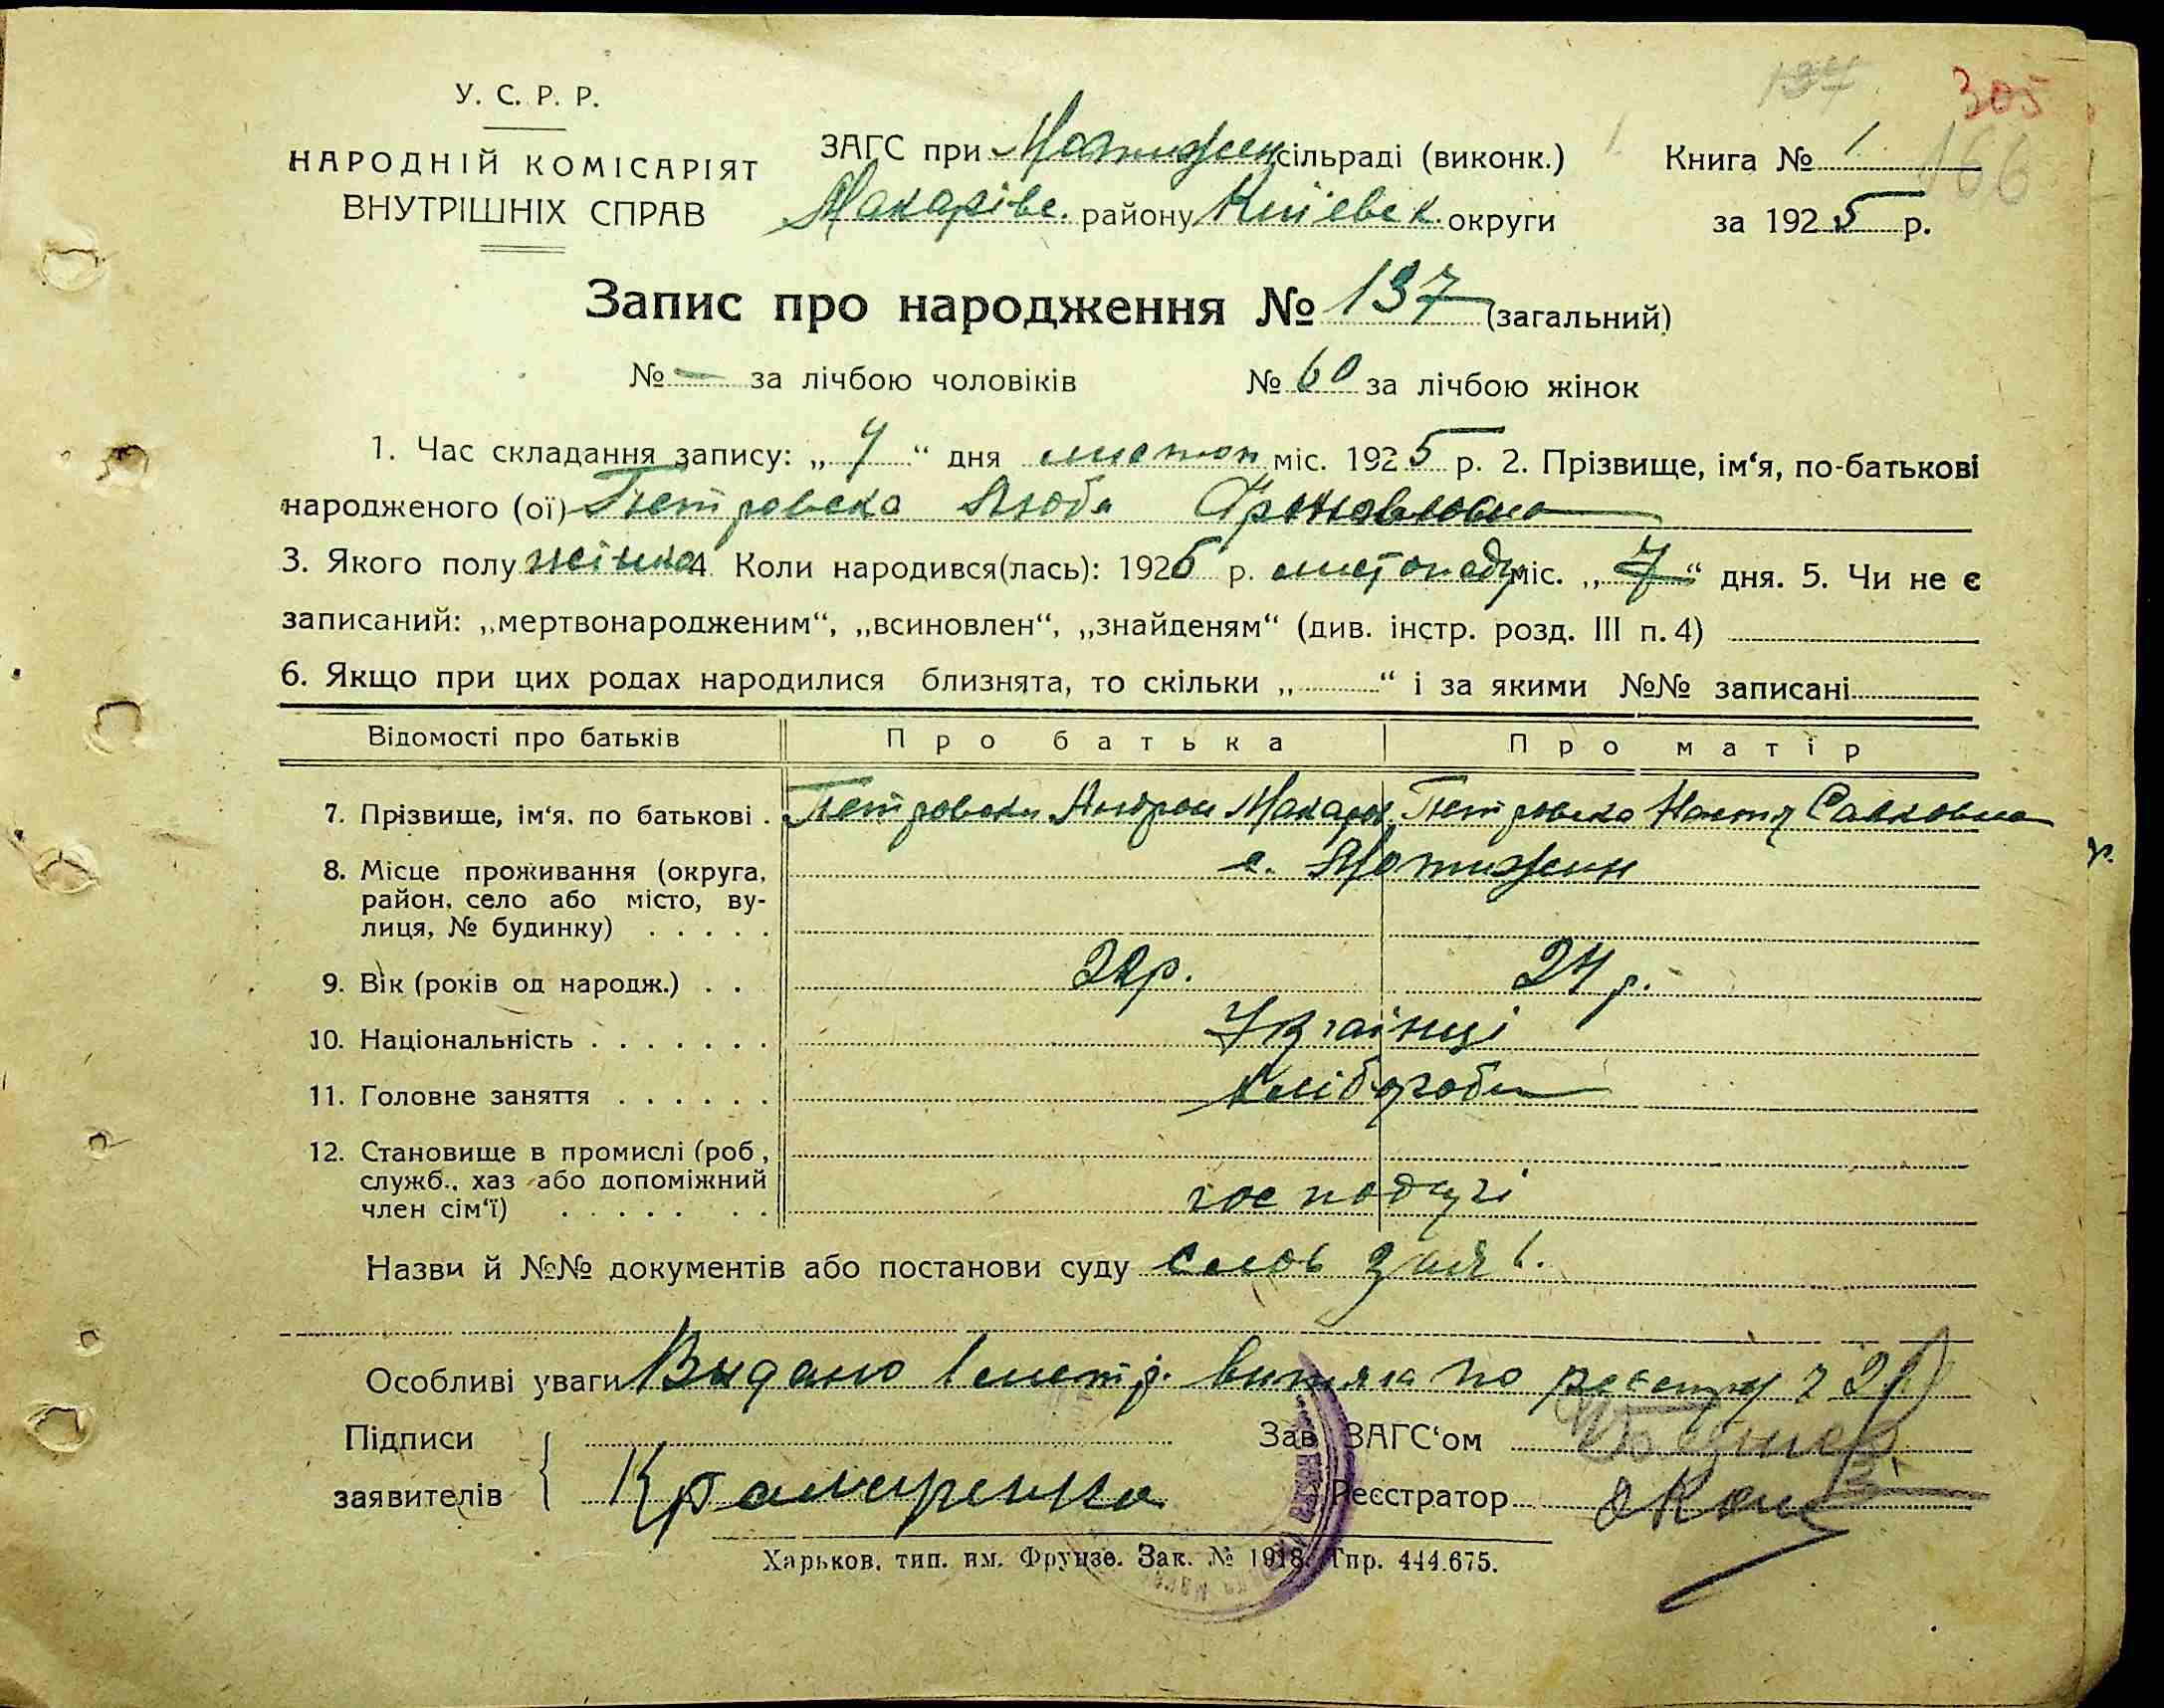 137 305
У. С. Р. Р.
НАРОДНІЙ КОМІСАРІЯТ
ВНУТРІШНІХ СПРАВ
ЗАГС при Мотижин сільраді (виконк.)
Макарівс. району Київськ. округи
Книга № 1
166
за 1925 р.
Запис про народження № 137 (загальний)
№ — за лічбою чоловіків № 60 за лічбою жінок
1. Час складання запису: „ 7 “ дня листоп міс. 1925 р. 2. Прізвище, ім‘я, по-батькові
народженого (ої) Петровска Люба
3. Якого полу жінка 4. Коли народився(лась): 1925 р. листопаду міс. „ 7 “ дня. 5. Чи не є
записаний: „мертвонародженим“, „всиновлен“, „знайденям“ (див. інстр. розд. III п. 4)
6. Якщо при цих родах народилися близнята, то скільки „ “ і за якими №№ записані
Відомості про батьків Про батька Про матір
7. Прізвище, ім‘я, по батькові . Петровски Андрон Макаров. Петровска Настя Савковна
8. Місце проживання (округа, с. Мотижин
район, село або місто, ву-
лиця, № будинку) . . . . .
9. Вік (років од народж.) . . р. 24 р.
10. Національність . . . . . . . Українці
11. Головне заняття . . . . . . хлібороби
12. Становище в промислі (роб,
служб., хаз або допоміжний
член сім‘ї) . . . . . . . господарі
Назви й №№ документів або постанови суду слов заяв.
Особливі уваги Видано 1 метр. витяга по реєстру
Підписи
заявителів Крамаренко
Зав ЗАГС‘ом
Реєстратор
Харьков, тип. им. Фрунзе. Зак. № 1918. Тир. 444.675.